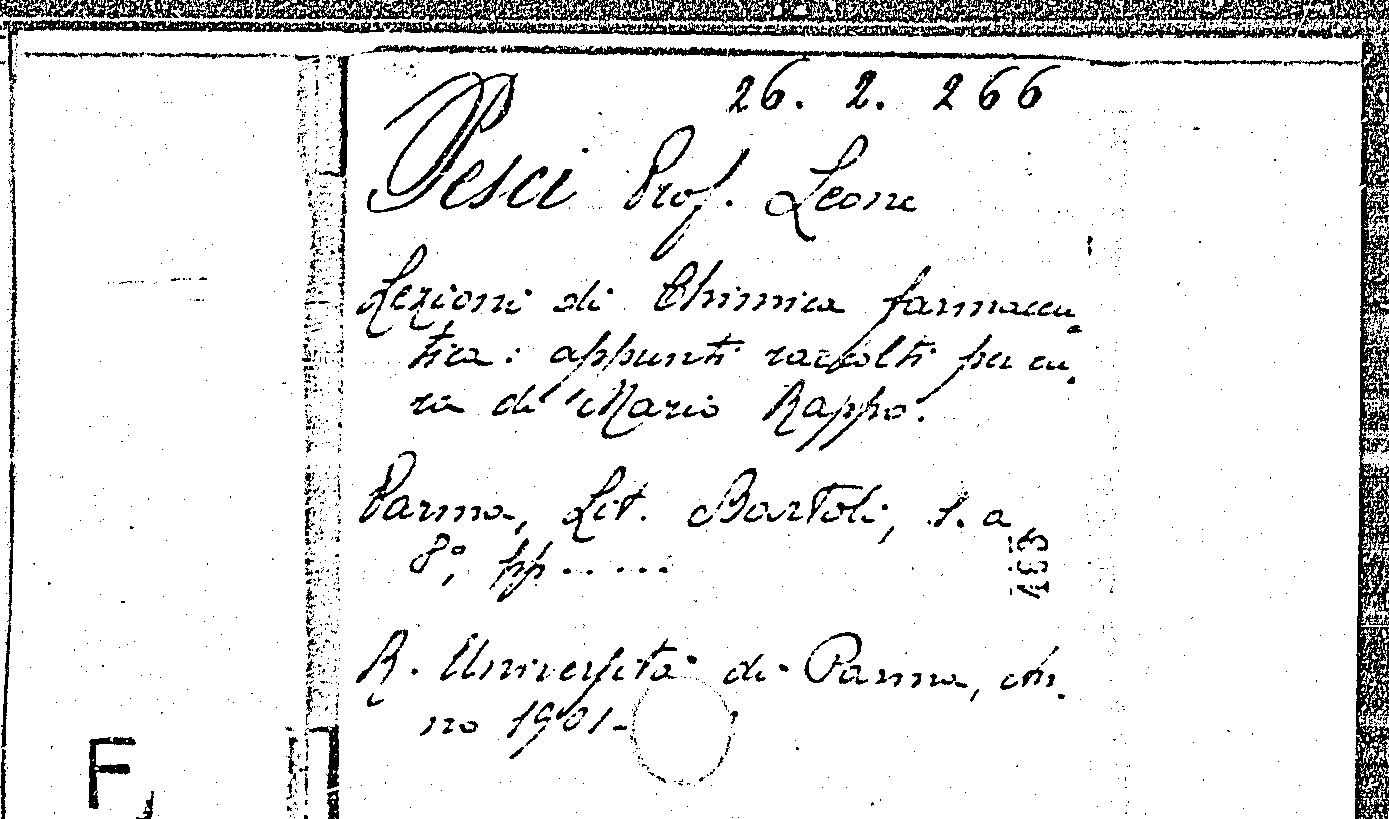 26. 2. 266
Pesci Prof. Leone
Lezioni di Chimica farmaceu-
tica: appunti raccolti per cu-
ra di Mario Rappo.
Parma, Lit. Bartoli, s. a.
8°, pp.....
R. Università di Parma, An-
no 1901-
F